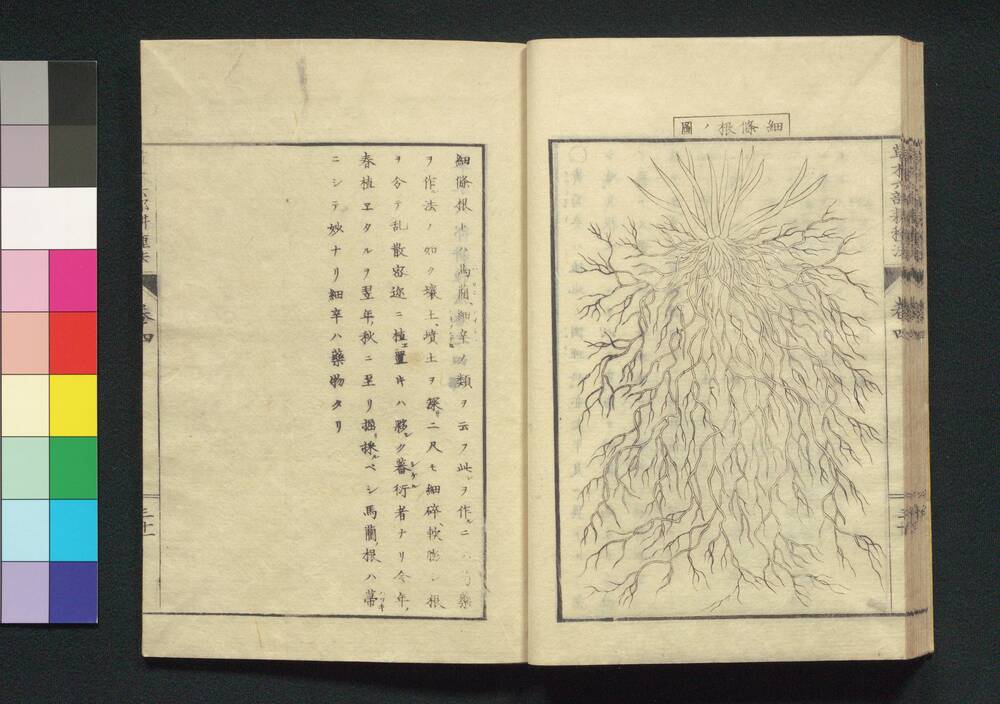 細條根ノ圖
草木六部耕種法
卷四
細條根トハ馬藺細辛ノ類ヲ云フ此ヲ作ニハ芍藥
ヲ作ル法ノ如ク壤土墳土ヲ深二尺モ細碎軟膨シ根
ヲ分テ乱散密迩ニ植置キハ夥ク蕃衍者ナリ今年
春植ヱタルヲ翌年秋ニ至リ掘採ベシ馬藺根ハ箒
ニシテ妙ナリ細辛ハ藥物タリ
卷四